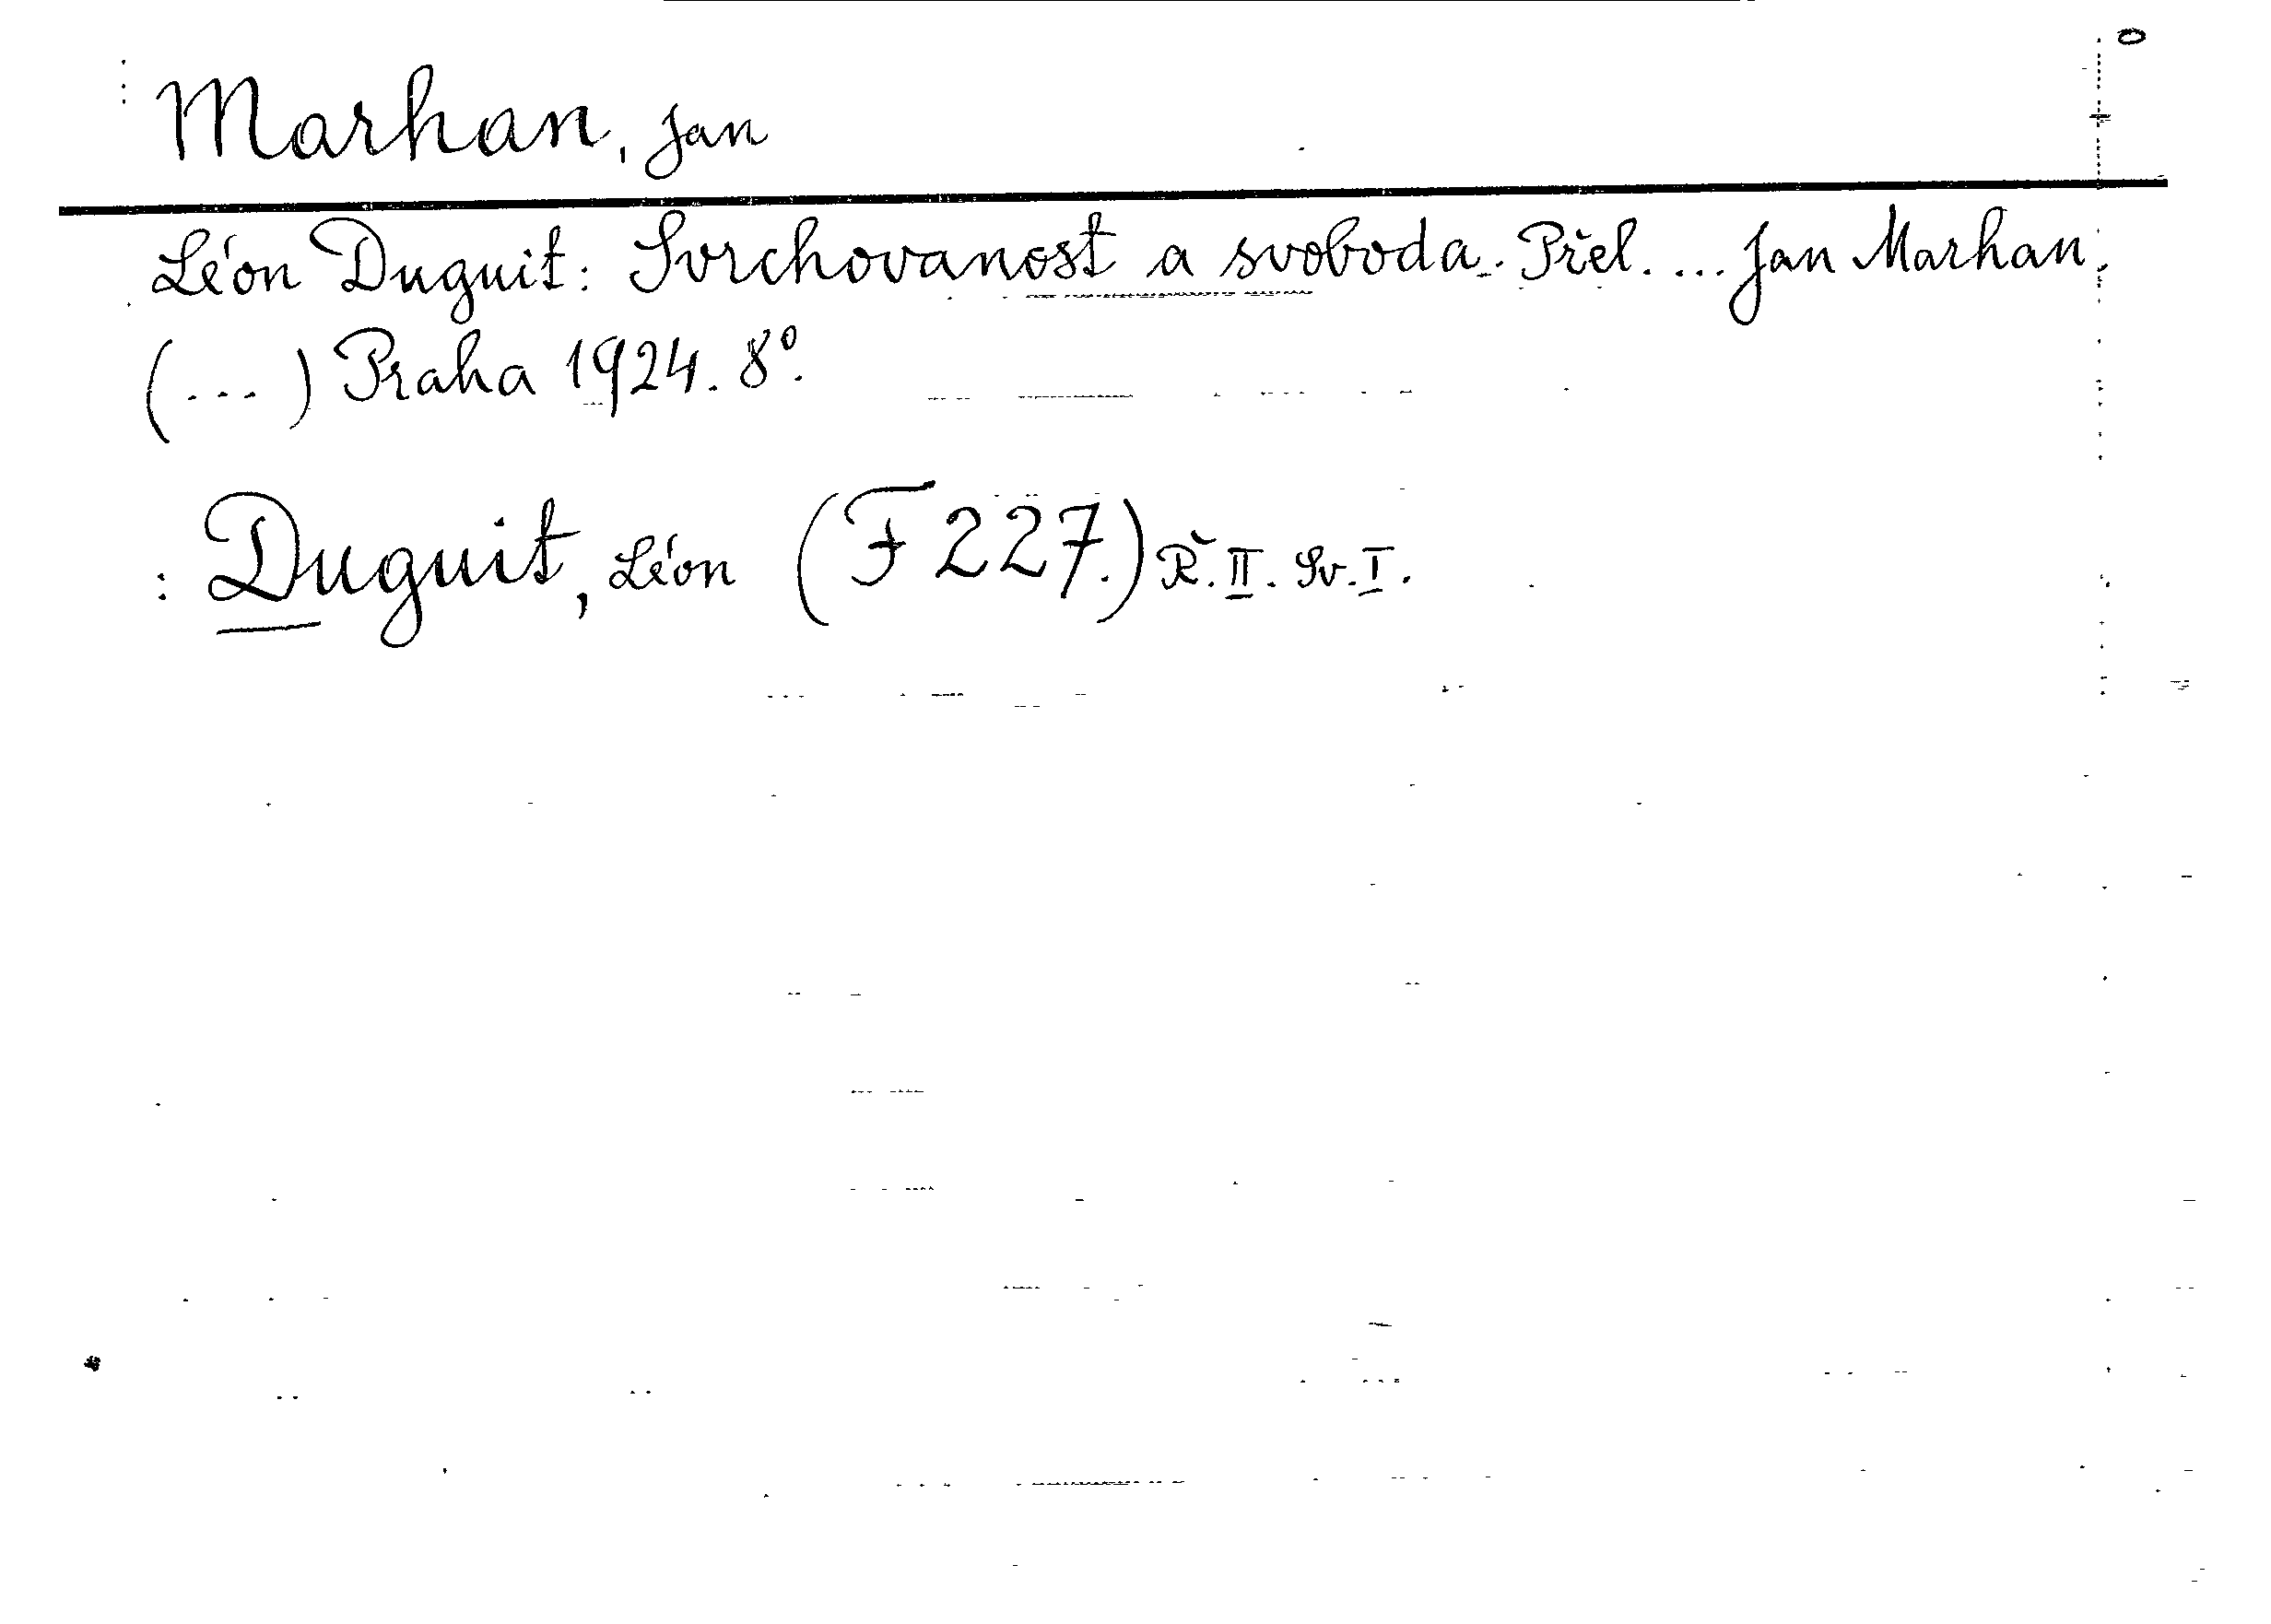 Marhan, Jan
Léon Duguit: Svrchovanost a svoboda. Přel. ... Jan Marhan.
(...) Praha 1924. 8°.
: Duguit, Léon (F 227.) Ř. II. Sv. I.